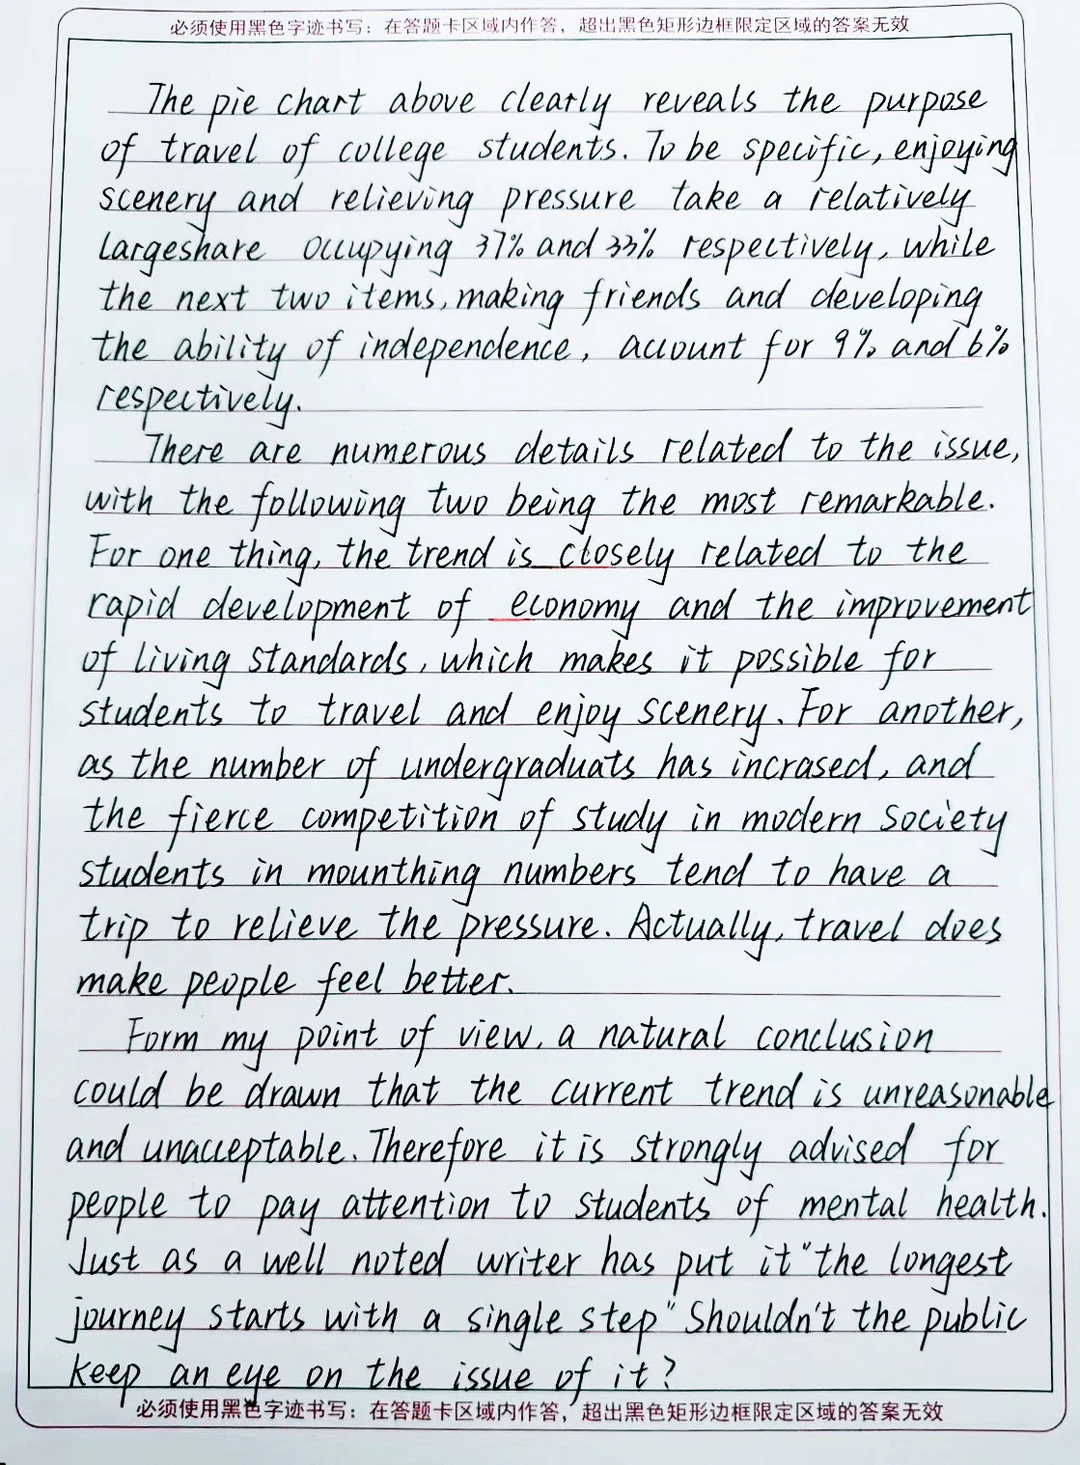 必须使用黑色字迹书写：在答题卡区域内作答，超出黑色矩形边框限定区域的答案无效
The pie chart above clearly reveals the purpose
of travel of college students. To be specific, enjoying
scenery and relieving pressure take a relatively
largeshare occupying 37% and 33% respectively, while
the next two items, making friends and developing
the ability of independence, account for 9% and 6%
respectively.
There are numerous details related to the issue,
with the following two being the most remarkable.
For one thing, the trend is closely related to the
rapid development of economy and the improvement
of living standards, which makes it possible for
students to travel and enjoy scenery. For another,
as the number of undergraduats has incrased, and
the fierce competition of study in modern society
students in mounthing numbers tend to have a
trip to relieve the pressure. Actually, travel does
make people feel better.
Form my point of view, a natural conclusion
could be drawn that the current trend is unreasonable
and unacceptable. Therefore it is strongly advised for
people to pay attention to students of mental health.
Just as a well noted writer has put it "the longest
journey starts with a single step" Shouldn't the public
keep an eye on the issue of it?
必须使用黑色字迹书写：在答题卡区域内作答，超出黑色矩形边框限定区域的答案无效